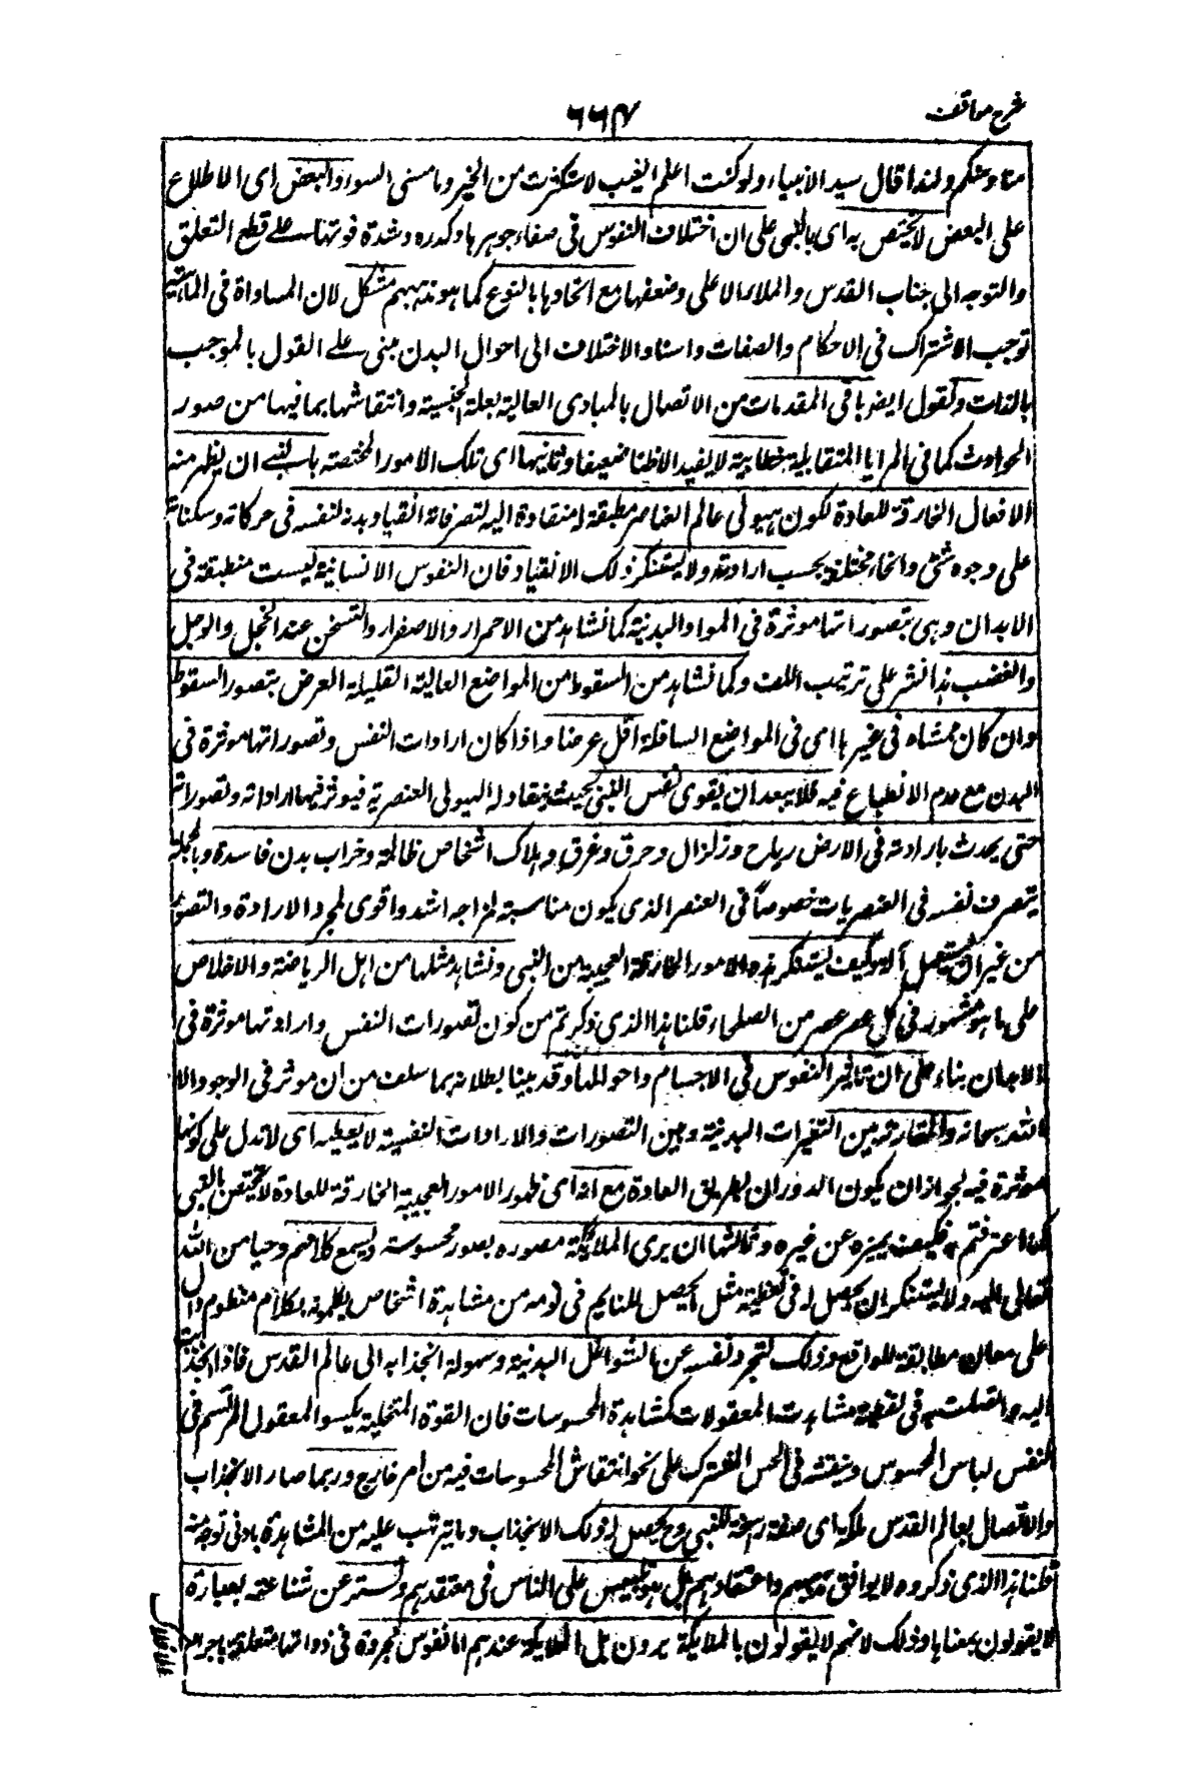 شرح مواقف
٦٦٤
منا ومنكم ولهذا قال سيد الانبياء ولو كنت اعلم الغيب لاستكثرت من الخير وما مسنى السوء والبعض اى الاطلاع
على البعض لا يختص به اى بالنبى على ان اختلاف النفوس فى صفاء جوهرها وكدره وشدة قوتها على قطع التعلق
والتوجه الى جناب القدس والملاء الاعلى وضعفها مع اتحادها بالنوع كما هو مذهبهم مشكل لان المساواة فى الماهية
توجب الاشتراك فى الاحكام والصفات واسناد الاختلاف الى احوال البدن مبنى على القول بالموجب
بالذات ونقول ايضا باقى المقدمات من الاتصال بالمبادى العالية بعلة الجنسية وانتقاشها بما فيها من صور
الحوادث كما فى المرايا المتقابلة خطابية لا يفيد الا ظنا ضعيفا وثانيها اى تلك الامور المختصة بالنبى ان يظهر منه
الافعال الخارقة للعادة لكون هيولى عالم العناصر مطيعة له منقادة اليه لتصرفاته انقياد بدنه لنفسه فى حركاته وسكناته
على وجوه شتى وانحاء مختلفة بحسب ارادته ولا يستنكر ذلك الانقياد فان النفوس الانسانية ليست منطبعة فى
الابدان وهى بتصوراتها موثرة فى المواد البدنية كما نشاهد من الاحمرار والاصفرار والتسخن عند الخجل والوجل
والغضب هذا نشر على ترتيب اللف وكما نشاهد من السقوط من المواضع العالية القليلة العرض بتصور السقوط
وان كان ممشاه فى غيرها اى فى المواضع السافلة اقل عرضا واذا كان ارادات النفس وتصوراتها موثرة فى
البدن مع عدم الانطباع فيه فلا يبعد ان يقوى نفس النبى بحيث ينقاد له الهيولى العنصرية فيوثر فيها ارادته وتصوراته
حتى يحدث بارادته فى الارض رياح وزلزال وحرق وغرق وهلاك اشخاص ظالمة وخراب بدن فاسدة وبالجملة
يتصرف نفسه فى العنصريات خصوصا فى العنصر الذى يكون مناسبته لمزاجه اشد واقوى لمجرد الارادة والتصور
من غير ان يستعمل آلة وكيف يستنكر هذه الامور الخارقة العجيبة من النبى ونشاهد مثلها من اهل الرياضة والاخلاص
على ما هو مشهور فى كل عصر عصر من الصلحاء قلنا هذا الذى ذكرتم من كون تصورات النفس وارادتها موثرة فى
الابدان بناء على ان تاثير النفوس فى الاجسام واحوالها وقد بينا بطلانه بما سلف من ان موثر فى الوجود الا
الله سبحانه والمقارنة بين التغيرات البدنية وبين التصورات والارادات النفسية لا يعطيه اى لا تدل على كونها
موثرة فيه لجواز ان يكون الدوران بطريق العادة مع انه اى ظهور الامور العجيبة الخارقة للعادة لا يختص بالنبى
كما اعترفتم به فكيف يميزه عن غيره وثالثها ان يرى الملائكة مصوره بصور محسوسة ويسمع كلامهم وحيا من الله
تعالى اليه ولا يستنكر ان يحصل له فى يقظته مثل ما يحصل للنايم فى نومه من مشاهدة اشخاص يكلمونه بكلام منظوم دال
على معان مطابقة للواقع وذلك لتجرد نفسه عن الشواغل البدنية وسهولة انجذابه الى عالم القدس فاذا انجذبت
اليه واتصلت به فى يقظته مشاهدت المعقولات كمشاهدة المحسوسات فان القوة المتخيلة يكسوا المعقول المرتسم فى
النفس لباس المحسوس وينقشه فى الحس المشترك على نحو انتقاش المحسوسات فيه من امر خارج وربما صار الانجذاب
والاتصال بعالم القدس ملكة اى صفة راسخة للنبى وح يحصل له ذلك الانجذاب وما يترتب عليه من المشاهدة بادنى توجه منه
قلنا هذا الذى ذكروه لا يوافق مذهبهم واعتقادهم بل هو تلبيس على الناس فى معتقدهم وتستر عن شناعة بعبارة
لا يقولون بمعناها وذلك لانهم لا يقولون بالملائكة يرون بل الملائكة عندهم اما نفوس مجردة فى ذواتها متعلقة باجرام